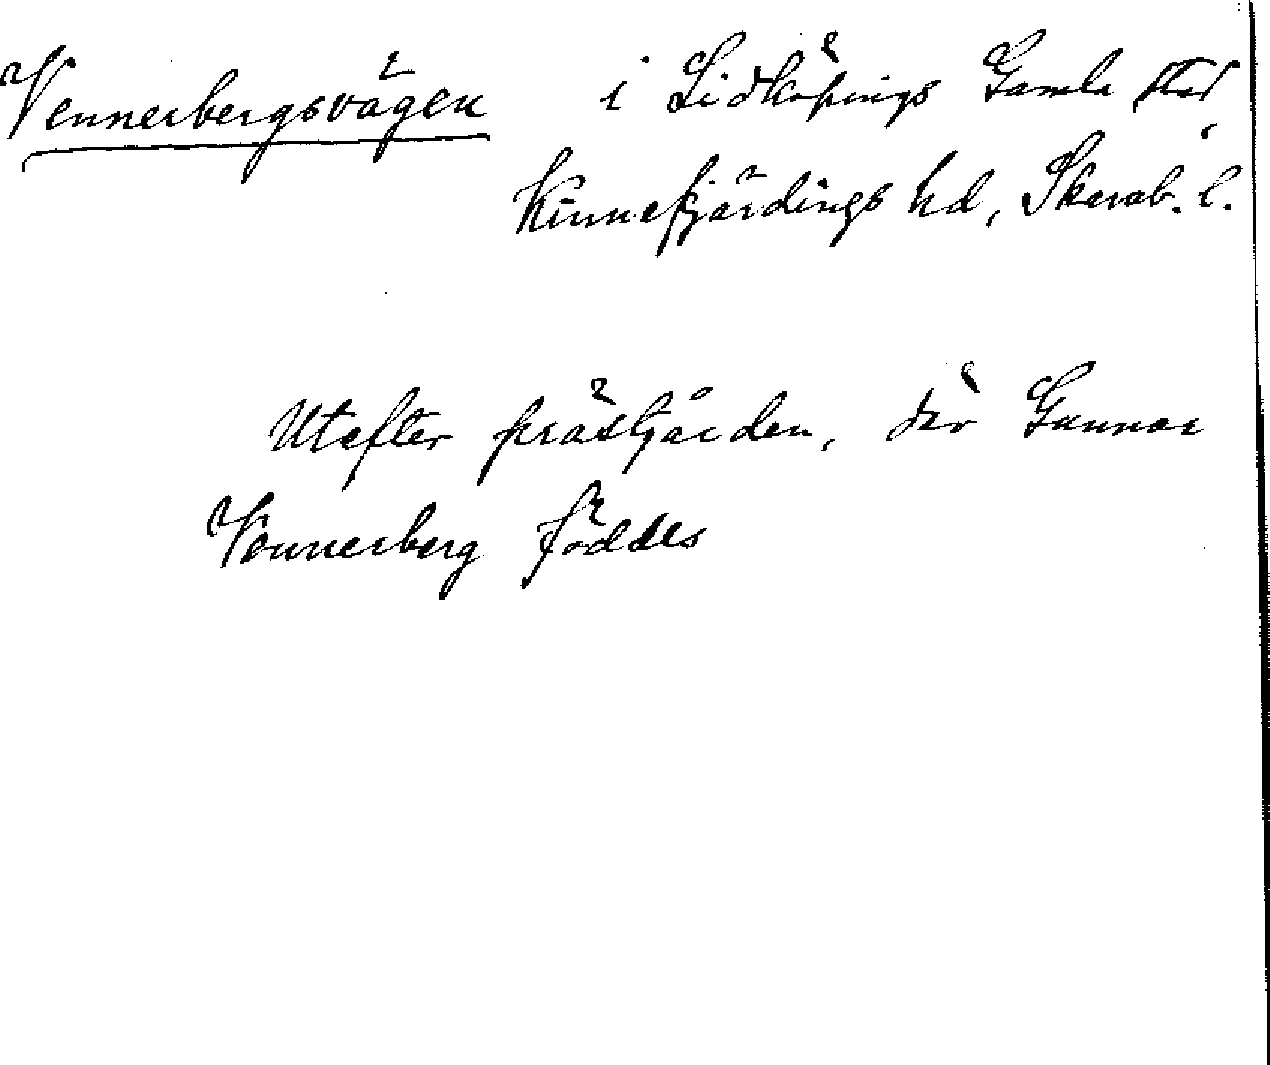 Vennerbergsvägen i Lidköpings Gamla stad,
Kinnefjärdings hd, Skarab. l.
Utefter prästgården, där Gunnar
Vennerberg föddes